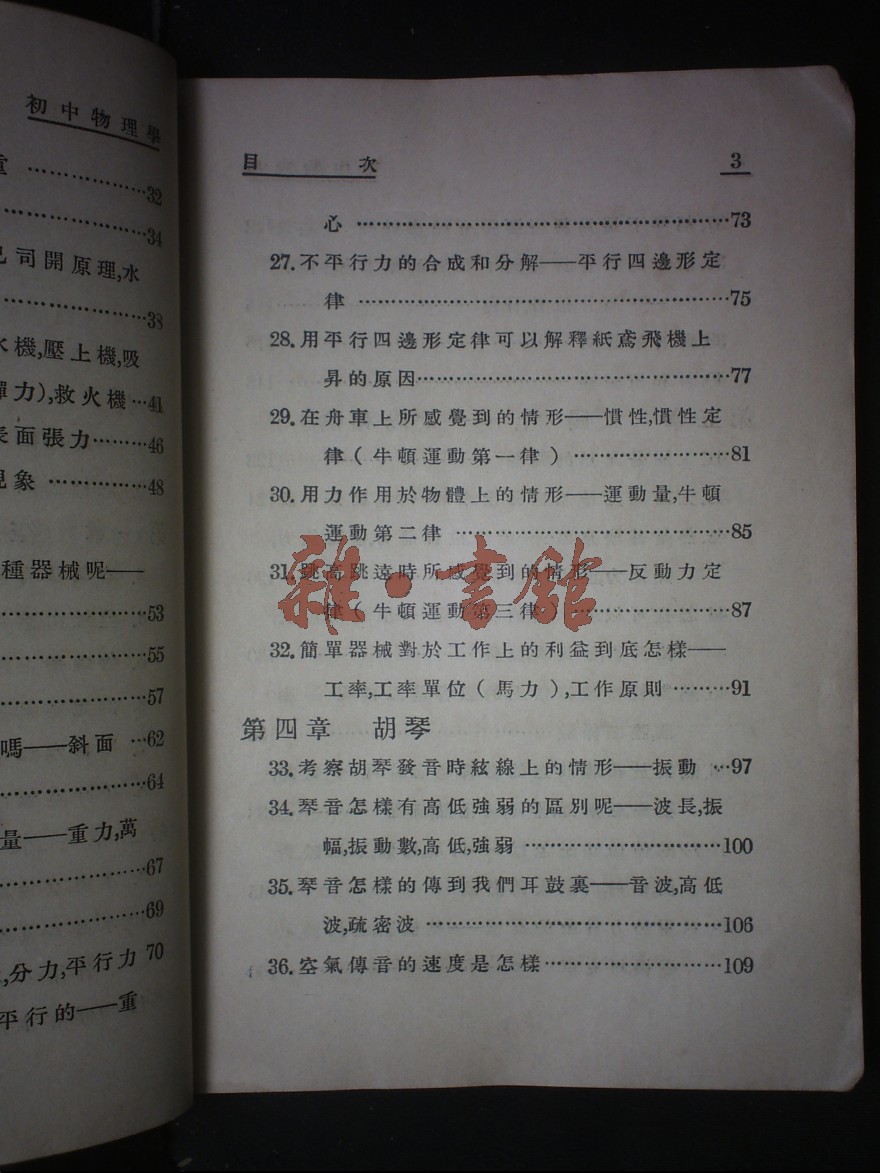 初中物理學
重 ………………32
………………34
司開原理,水
………………38
機,壓上機,吸
力),救火機…41
表面張力………46
現象……………48
種器械呢——
………………53
………………55
………………57
嗎——斜面…62
………………64
量——重力,萬
………………67
………………69
,分力,平行力 70
平行的——重
目次 3
心………………………………73
27.不平行力的合成和分解——平行四邊形定
律………………………………75
28.用平行四邊形定律可以解釋紙鳶飛機上
昇的原因………………………77
29.在舟車上所感覺到的情形——慣性,慣性定
律(牛頓運動第一律)……………81
30.用力作用於物體上的情形——運動量,牛頓
運動第二律……………………85
31.跳高跳遠時所感覺到的情形——反動力定
律(牛頓運動第三律)……………87
雜·書館
32.簡單器械對於工作上的利益到底怎樣——
工率,工率單位(馬力),工作原則………91
第四章 胡琴
33.考察胡琴發音時絃線上的情形——振動…97
34.琴音怎樣有高低強弱的區別呢——波長,振
幅,振動數,高低,強弱………………100
35.琴音怎樣的傳到我們耳鼓裏——音波,高低
波,疏密波………………………106
36.空氣傳音的速度是怎樣………………109